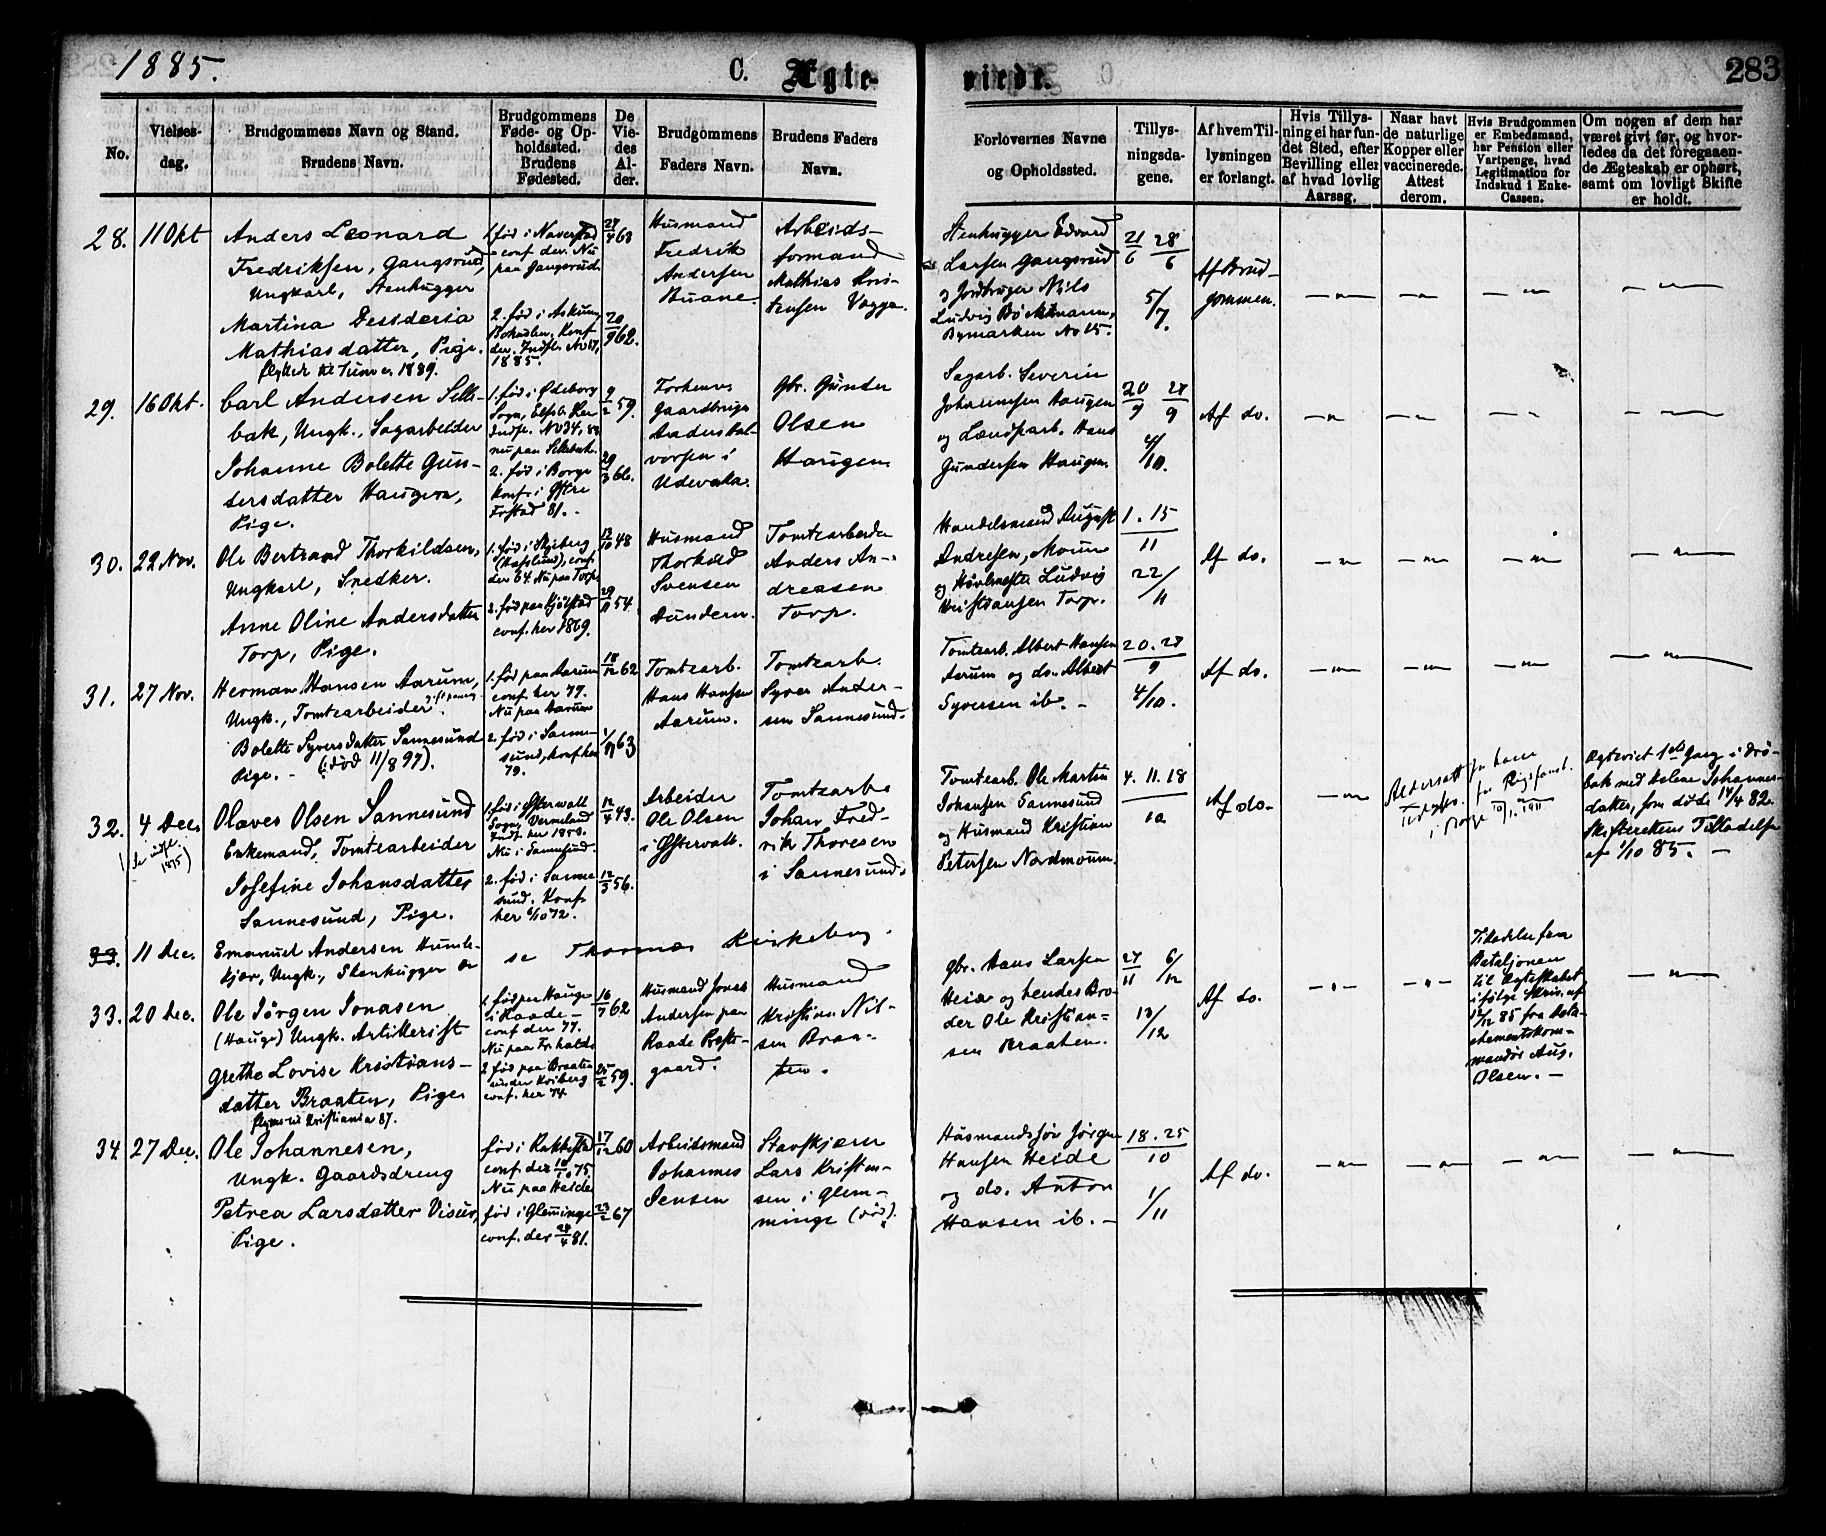 1885.
C. Ægte-
viede.
283
No.
Vielses-
dag.
Brudgommens Navn og Stand.
Brudens Navn.
Brudgommens
Føde- og Op-
holdssted.
Brudens
Fødested.
De
Vie-
des
Al-
der.
Brudgommens
Faders Navn.
Brudens Faders
Navn.
Forlovernes Navne
og Opholdssted.
Tillys-
ningsda-
gene.
Af hvem Til-
lysningen
er forlangt.
Hvis Tillys-
ning ei har fun-
det Sted, efter
Bevilling eller
af hvad lovlig
Aarsag.
Naar havt
de naturlige
Kopper eller
vaccinerede.
Attest
derom.
Hvis Brudgommen
er Embedsmand,
har Pension eller
Vartpenge, hvad
Legitimation for
Indskud i Enke-
Cassen.
Om nogen af dem har
været givt før, og hvor-
ledes da det foregaaen-
de Ægteskab er ophørt,
samt om lovligt Skifte
er holdt.
28. 11 Okt
Anders Leonard
Fredriksen, Gangsrud,
Ungkarl, Stenhugger
Martina Desideria
Mathiasdatter, Pige.
1889.
1. fød i Naverstad
conf. der. Nu
paa Gangsrud.
2. fød i Askum,
Bohuslen, Konf.
der. Indfl. No 17,
1885.
27/4 63
20/9 62.
Husmand
Fredrik
Andersen
Buane.
Arbeids-
formand
Mathias Kris-
tensen Vagga.
Stenhugger Edvard
Larsen Gangsrud
og Jordbruger Nils
Ludvig Böckmann,
Bymarken No 15.
21/6 28/6
5/7.
Af Brud-
gommen.
29. 16 Okt.
Carl Andersen Selle-
bak, Ungk., Sagarbeider
Johanne Bolette Gun-
dersdatter Haugen,
Pige.
1. fød i Ødeborg
Sogn,
Indfl. No 34,
nu paa Sellebak.
2. fød i Borge
Konf. i Østre
Frstad 81.
9/2 59.
29/3 66.
Forhenv.
Gaardbruger
Anders Hal-
vorsen i
Udevala.
Gbr. Gunder
Olsen
Haugen
Sagarb. Severin
Johannesen Haugen
og Landparb. Hans
Gundersen Haugen.
20/9 28/9
4/10.
Af do.
30. 22 Nov.
Ole Bertrand Thorkildsen,
Ungkarl, Snedker.
Anne Oline Andersdatter
Torp, Pige.
1. fød i Skjeberg
(Hafslund), conf.
der 64. Nu paa Torp.
2. fød paa Kjølstad
conf. her 1869.
12/10 48
29/11 54.
Husmand
Thorkild
Svensen
Sundern.
Tomtearbeider
Anders An-
dreasen
Torp.
Handelsmand August
Andresen, Moum
og Høvlmester Ludvig
Kristiansen Torp.
1. 15
11
22/11
Af do.
31. 27 Nov.
Herman Hansen Aarum,
Ungk., Tomtearbeider
Bolette Syversdatter Sannesund
Pige. - (død 11/8 97).
1. fød paa Aarum
conf. her 77.
Nu paa Aarum
2. fød i Sanne-
sund, konf. her
79.
18/12 62
1/11 63
Tomtearb.
Hans Hansen
Aarum.
Tomtearb.
Syver Ander-
sen Sannesund.
Tomtearb. Albert Hansen
Aarum og do. Albert
Syversen ib. -
20. 28
9
4/10.
Af do.
32. 4 Dec.
Olaves Olsen Sannesund
Enkemand, Tomtearbeider
Josefine Johansdatter
Sannesund, Pige.
1. fød i Østervall
Sogn, Vermeland
Indf. her
Nu i Sannesund.
2. fød i Sanne-
sund. Konf.
her 6/10 72.
12/4 49.
12/3 56.
Arbeider
Ole Olsen
i Østervall.
Tomtearb.
Johan Fred-
rik Thoresen
i Sannesund.
Tomtearb. Ole Martin
Johansen Sannesund
og Husmand Kristian
Petersen Nordmoum.
4. 11. 18
10
Af do.
Ægteviet 1ste Gang i Drö-
bak med Helene Johannes-
datter, som döde 14/4 82.
Skifterettens Tilladelse
af 1/10 85. -
33. 11 Dec.
Emanuel Andersen Humle-
kjær, Ungk., Stenhugger
se Thomas Kirkebog.
33. 20 Dec.
Ole Jörgen Jonasen
(Hauge) Ungk. Artillerist
Grethe Lovise Kristians-
datter Braaten, Pige
flyttet til Kristiania 87.
1. fød paa Hauge
i Raade -
conf. der 77.
Nu paa Fr.hald.
2 fød paa Braaten
under Kviberg
conf. her 74
16/7 62
25/2 59.
Husmand Jonas
Andersen paa
Raade Præste-
gaard.
Husmand
Kristian Nil-
sen Braa-
ten.
Gbr. Hans Larsen
Heia og hendes Bro-
der Ole Kristian-
sen Braaten.
27/11 6/12
13/12
Af do.
Tilladelse fra
Bataljonen
til Ægteskabet
ifølge Skriv. af
12/12 85 fra Deta-
chementskom-
mandör Aug.
Olsen. -
34. 27 Dec.
Ole Johannesen,
Ungk. Gaardsdreng
Petrea Larsdatter Visur,
Pige.
fød i Rakkestad
conf. der 10/10 75.
Nu paa Heide
fød i Glemminge
conf. der 24/4 81.
17/12 60
23/2 67
Arbeidsmand
Johannes
Jensen
Stavskjærer
Lars Kristen-
sen i Glem-
minge (död).
Husmandssön Jörgen
Hansen Heide
og do. Anton
Hansen ib. -
18. 25
10
1/11
Af do.